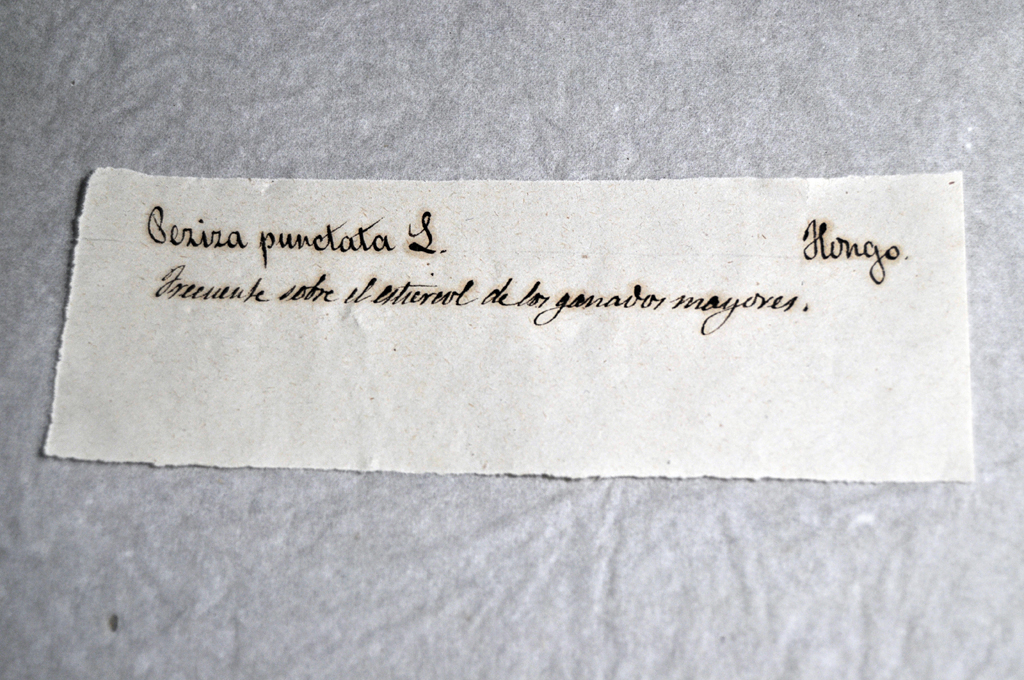 Peziza punctata L. Hongo.
Frecuente sobre el estiercol de los ganados mayores.